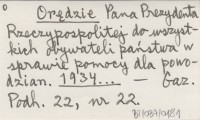 Orędzie Pana Prezydenta
Rzeczypospolitej do wszyst-
kich obywateli państwa w
sprawie pomocy dla powo-
dzian. 1934... — Gaz.
Podh. 22, nr 22.